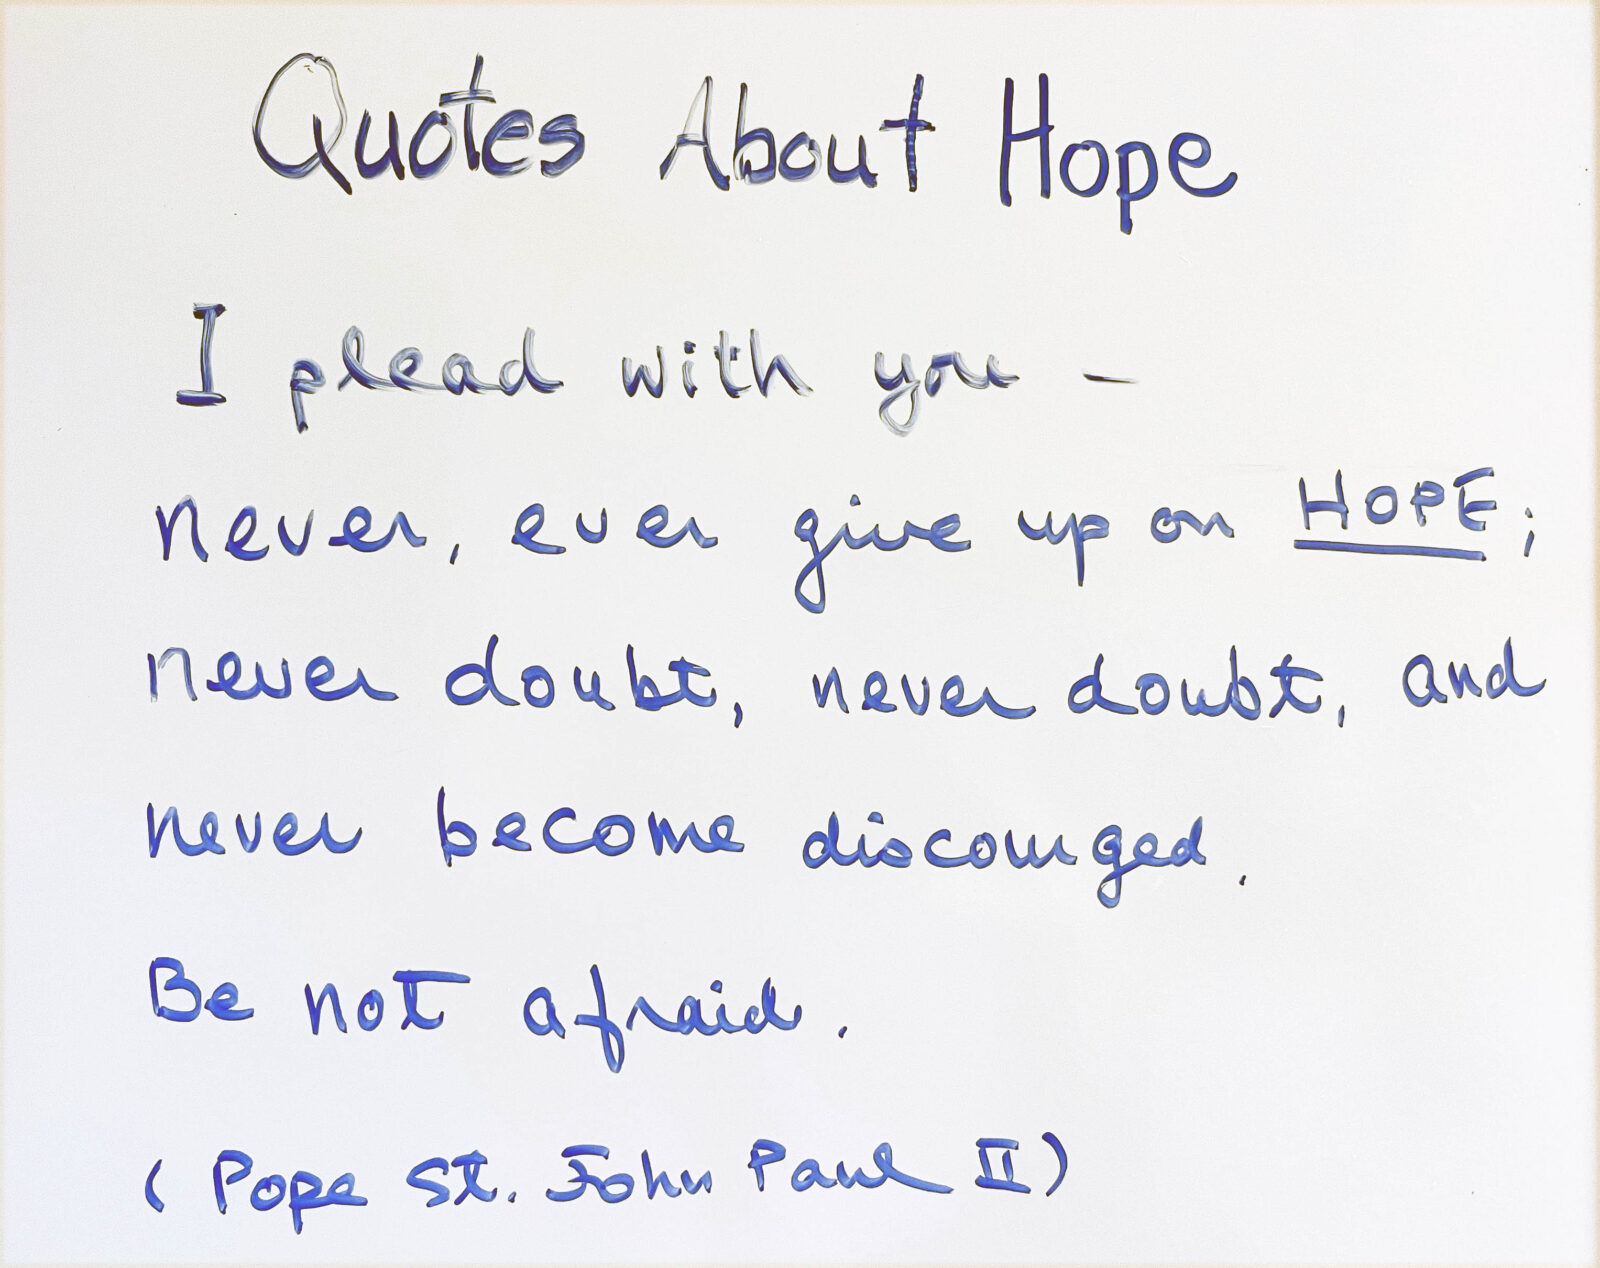 Quotes About Hope
I plead with you -
never, ever give up on HOPE;
never doubt, never doubt, and
never become discouraged.
Be not afraid.
(Pope St. John Paul II)